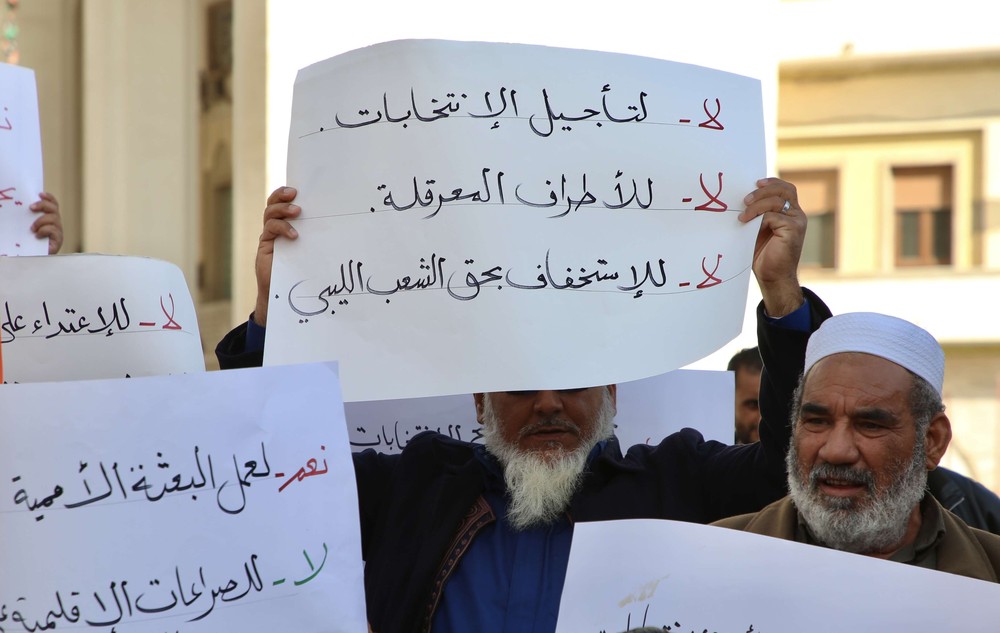 لا - لتأجيل الإنتخابات .
لا - للأطراف المعرقلة .
لا - للإستخفاف بحق الشعب الليبي .
لا - للإعتداء على
نعم - لعمل البعثة الأممية
لا - للصراعات الاقليمية
الانتخابات